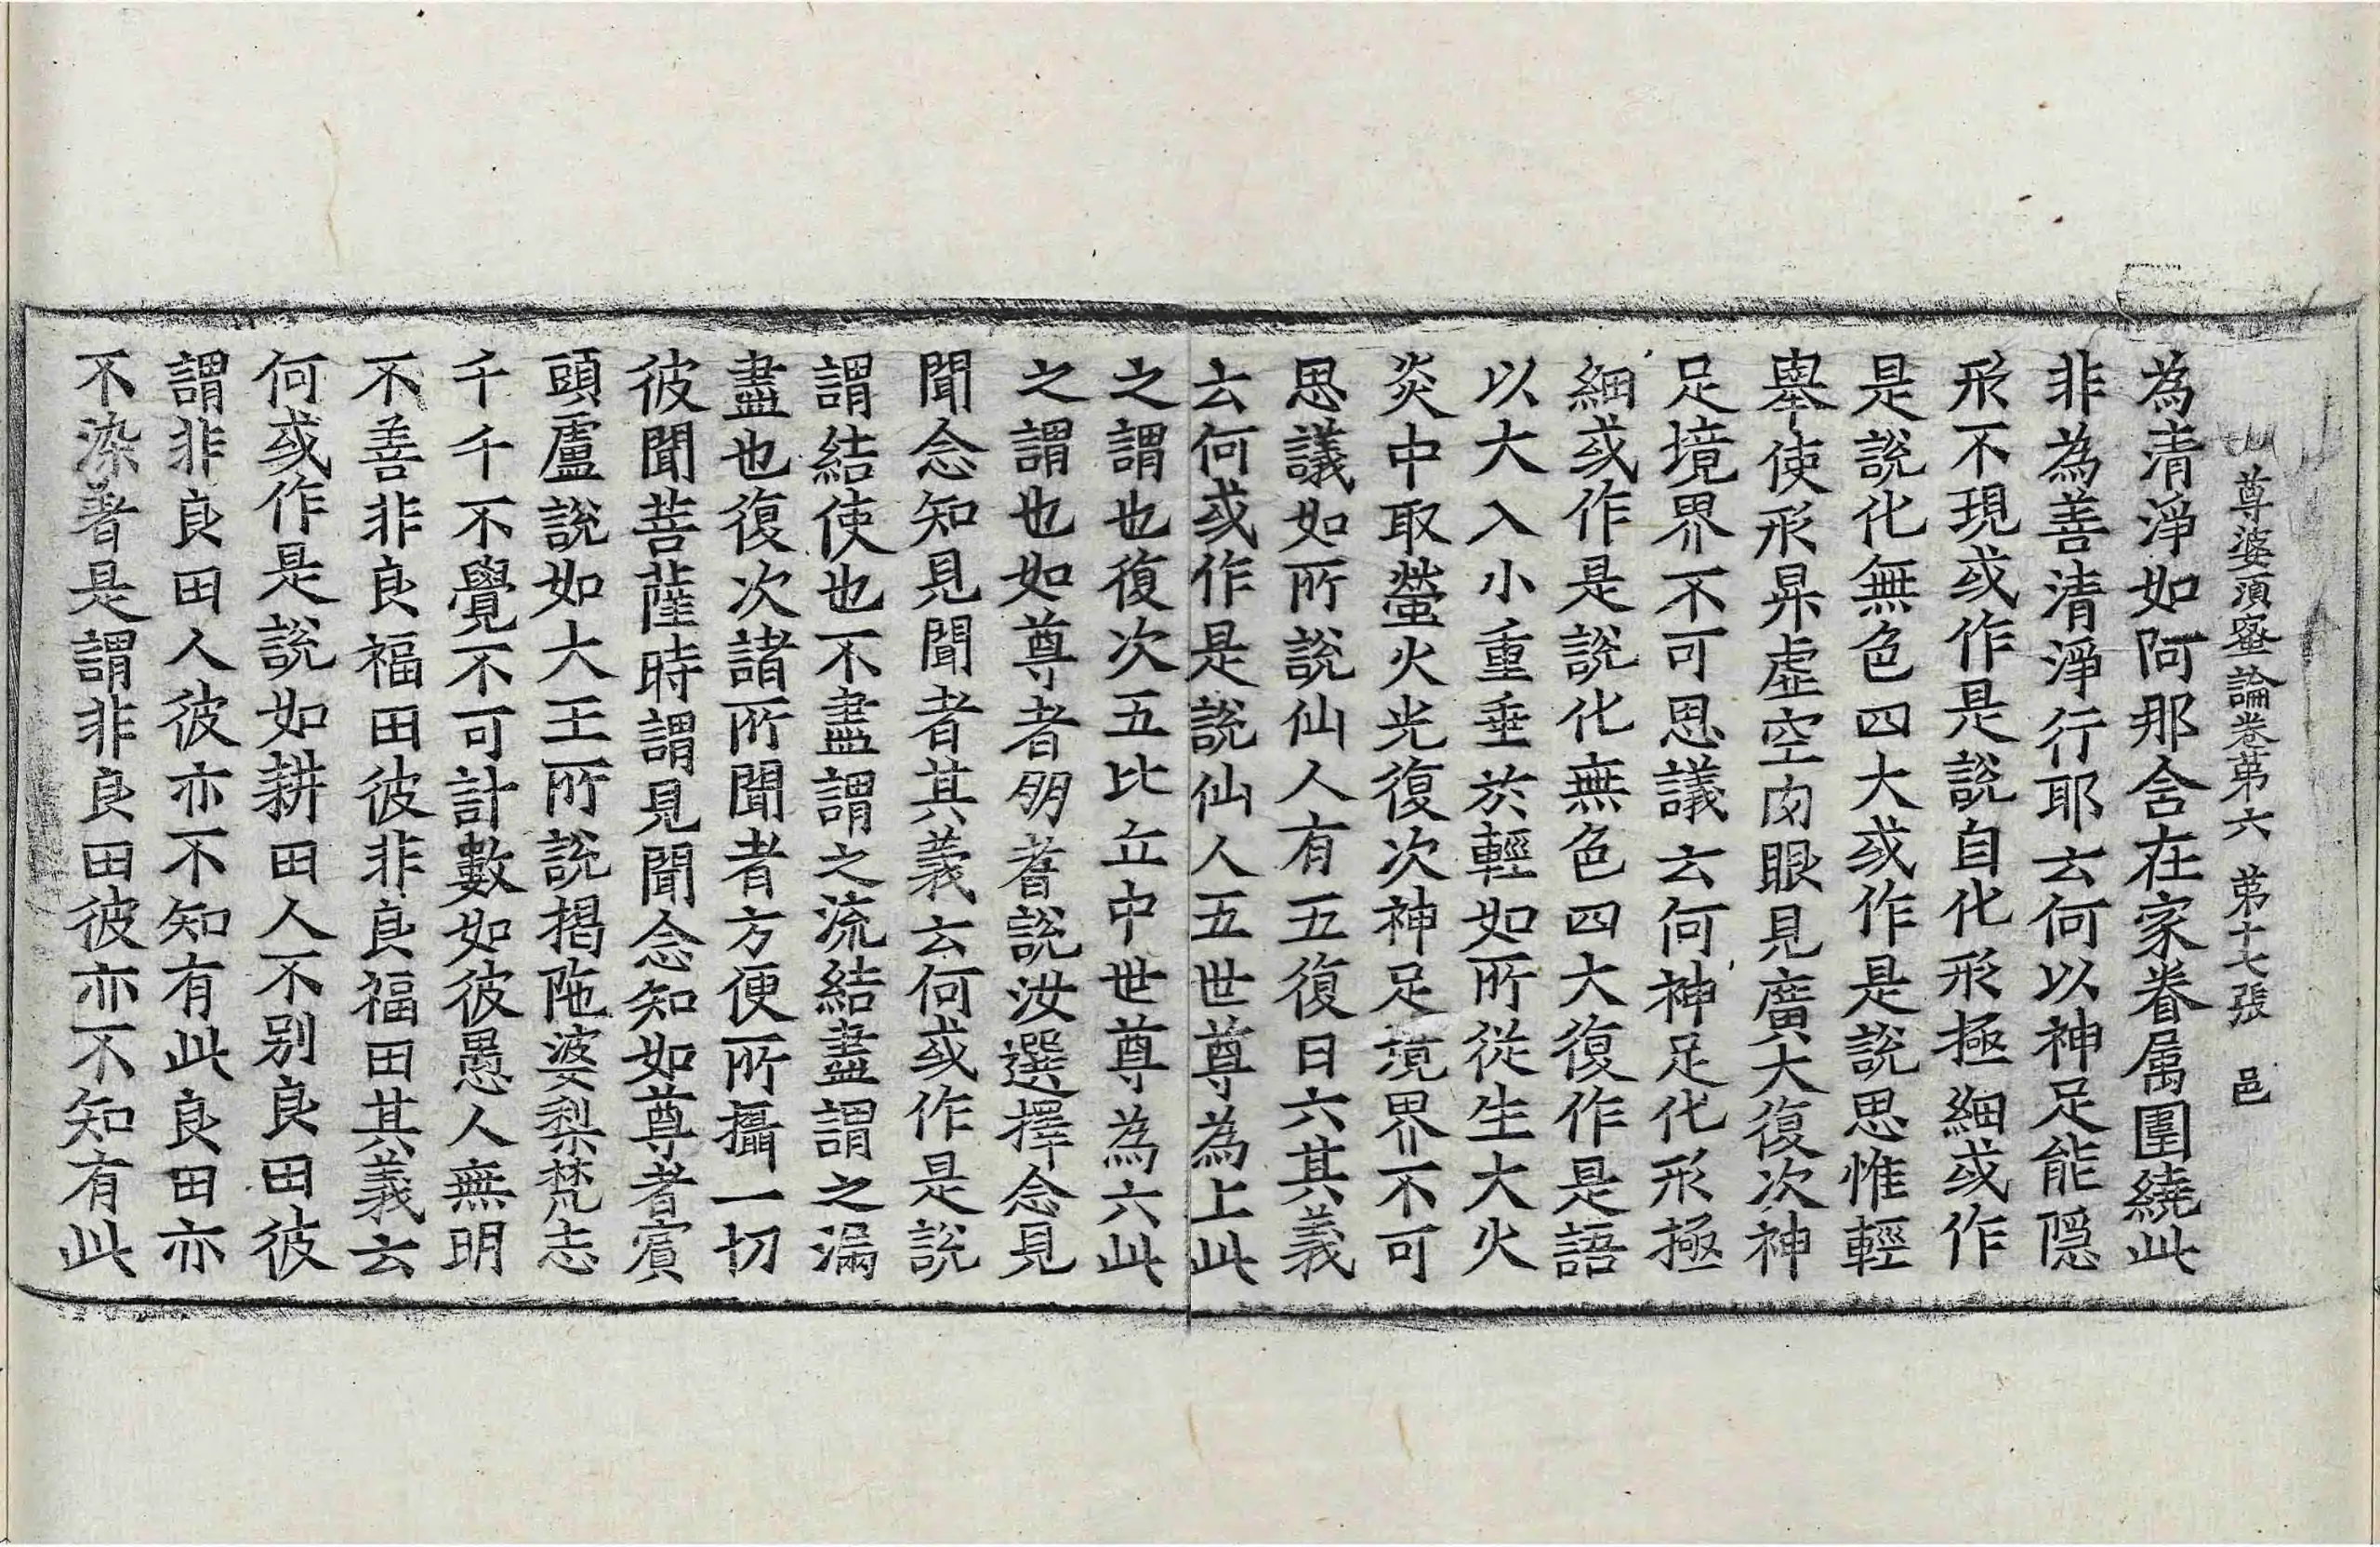 尊婆須蜜論卷第六　第十七張　邑
為清淨如阿那含在家眷属圍繞此
非為善清淨行耶云何以神足能隠
形不現或作是說自化形極細或作
是說化無色四大或作是說思惟輕
舉使形昇虛空肉眼見廣大復次神
足境界不可思議云何神足化形極
細或作是說化無色四大復作是語
以大入小重垂於輕如所從生大火
炎中取螢火光復次神足境界不可
思議如所說仙人有五復日六其義
云何或作是說仙人五世尊為上此
之謂也復次五比丘中世尊為六此
之謂也如尊者朙者說汝選擇念見
聞念知見聞者其義云何或作是說
謂結使也不盡謂之流結盡謂之漏
盡也復次諸所聞者方便所攝一切
彼聞菩薩時謂見聞念知如尊者賓
頭盧說如大王所說揭陁婆梨梵志
千千不覺不可計數如彼愚人無明
不善非良福田彼非良福田其義云
何或作是說如耕田人不别良田彼
謂非良田人彼亦不知有此良田亦
不染著是謂非良田彼亦不知有此